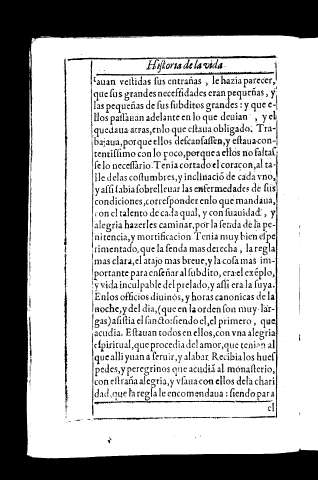 Historia de la vida
tauan vestidas sus entrañas, le hazia parecer,
que sus grandes necessidades eran pequeñas, y
las pequeñas de sus subditos grandes: y que e-
llos passauan adelante en lo que deuian, y el
quedaua atras, enlo que estaua obligado. Tra-
bajaua, porque ellos descansassen, y estaua con-
tentissimo con lo poco, porque a ellos no faltas
se lo necessario. Tenia cortado el coraçon, al ta
lle delas costumbres, y inclinaciō de cada vno,
y assi sabia sobrelleuar las enfermedades de sus
condiciones, corresponder enlo que mandaua,
con el talento de cada qual, y con suauidad, y
alegria hazerles caminar, por la senda de la pe-
nitencia, y mortificacion Tenia muy bien espe
rimentado, que la senda mas derecha, la regla
mas clara, el atajo mas breue, y la cosa mas im-
portante para enseñar al subdito, era el exēplo,
y vida inculpable del prelado, y assi era la suya.
Enlos officios diuinos, y horas canonicas de la
noche, y del dia, (que en la orden son muy lar-
gas) asistia el sancto: siendo el, el primero, que
acudia. Estauan todos en ellos, con vna alegria
espiritual, que procedia del amor, que tenian al
que alli yuan a seruir, y alabar. Recibia los hues
pedes, y peregrinos que acudiā al monasterio,
con estraña alegria, y vsaua con ellos dela chari
dad, que la regla le encomendaua: siendo para
el